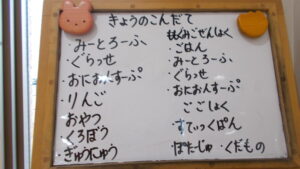 きょうのこんだて
・みーとろーふ
・ぐらっせ
・おにおんすーぷ
・りんご
おやつ
・くろぼう
・ぎゅうにゅう
ごぜんしょく
・ごはん
・みーとろーふ
・ぐらっせ
・おにおんすーぷ
ごごしょく
すてぃっくぱん
ぽたーじゅ・くだもの